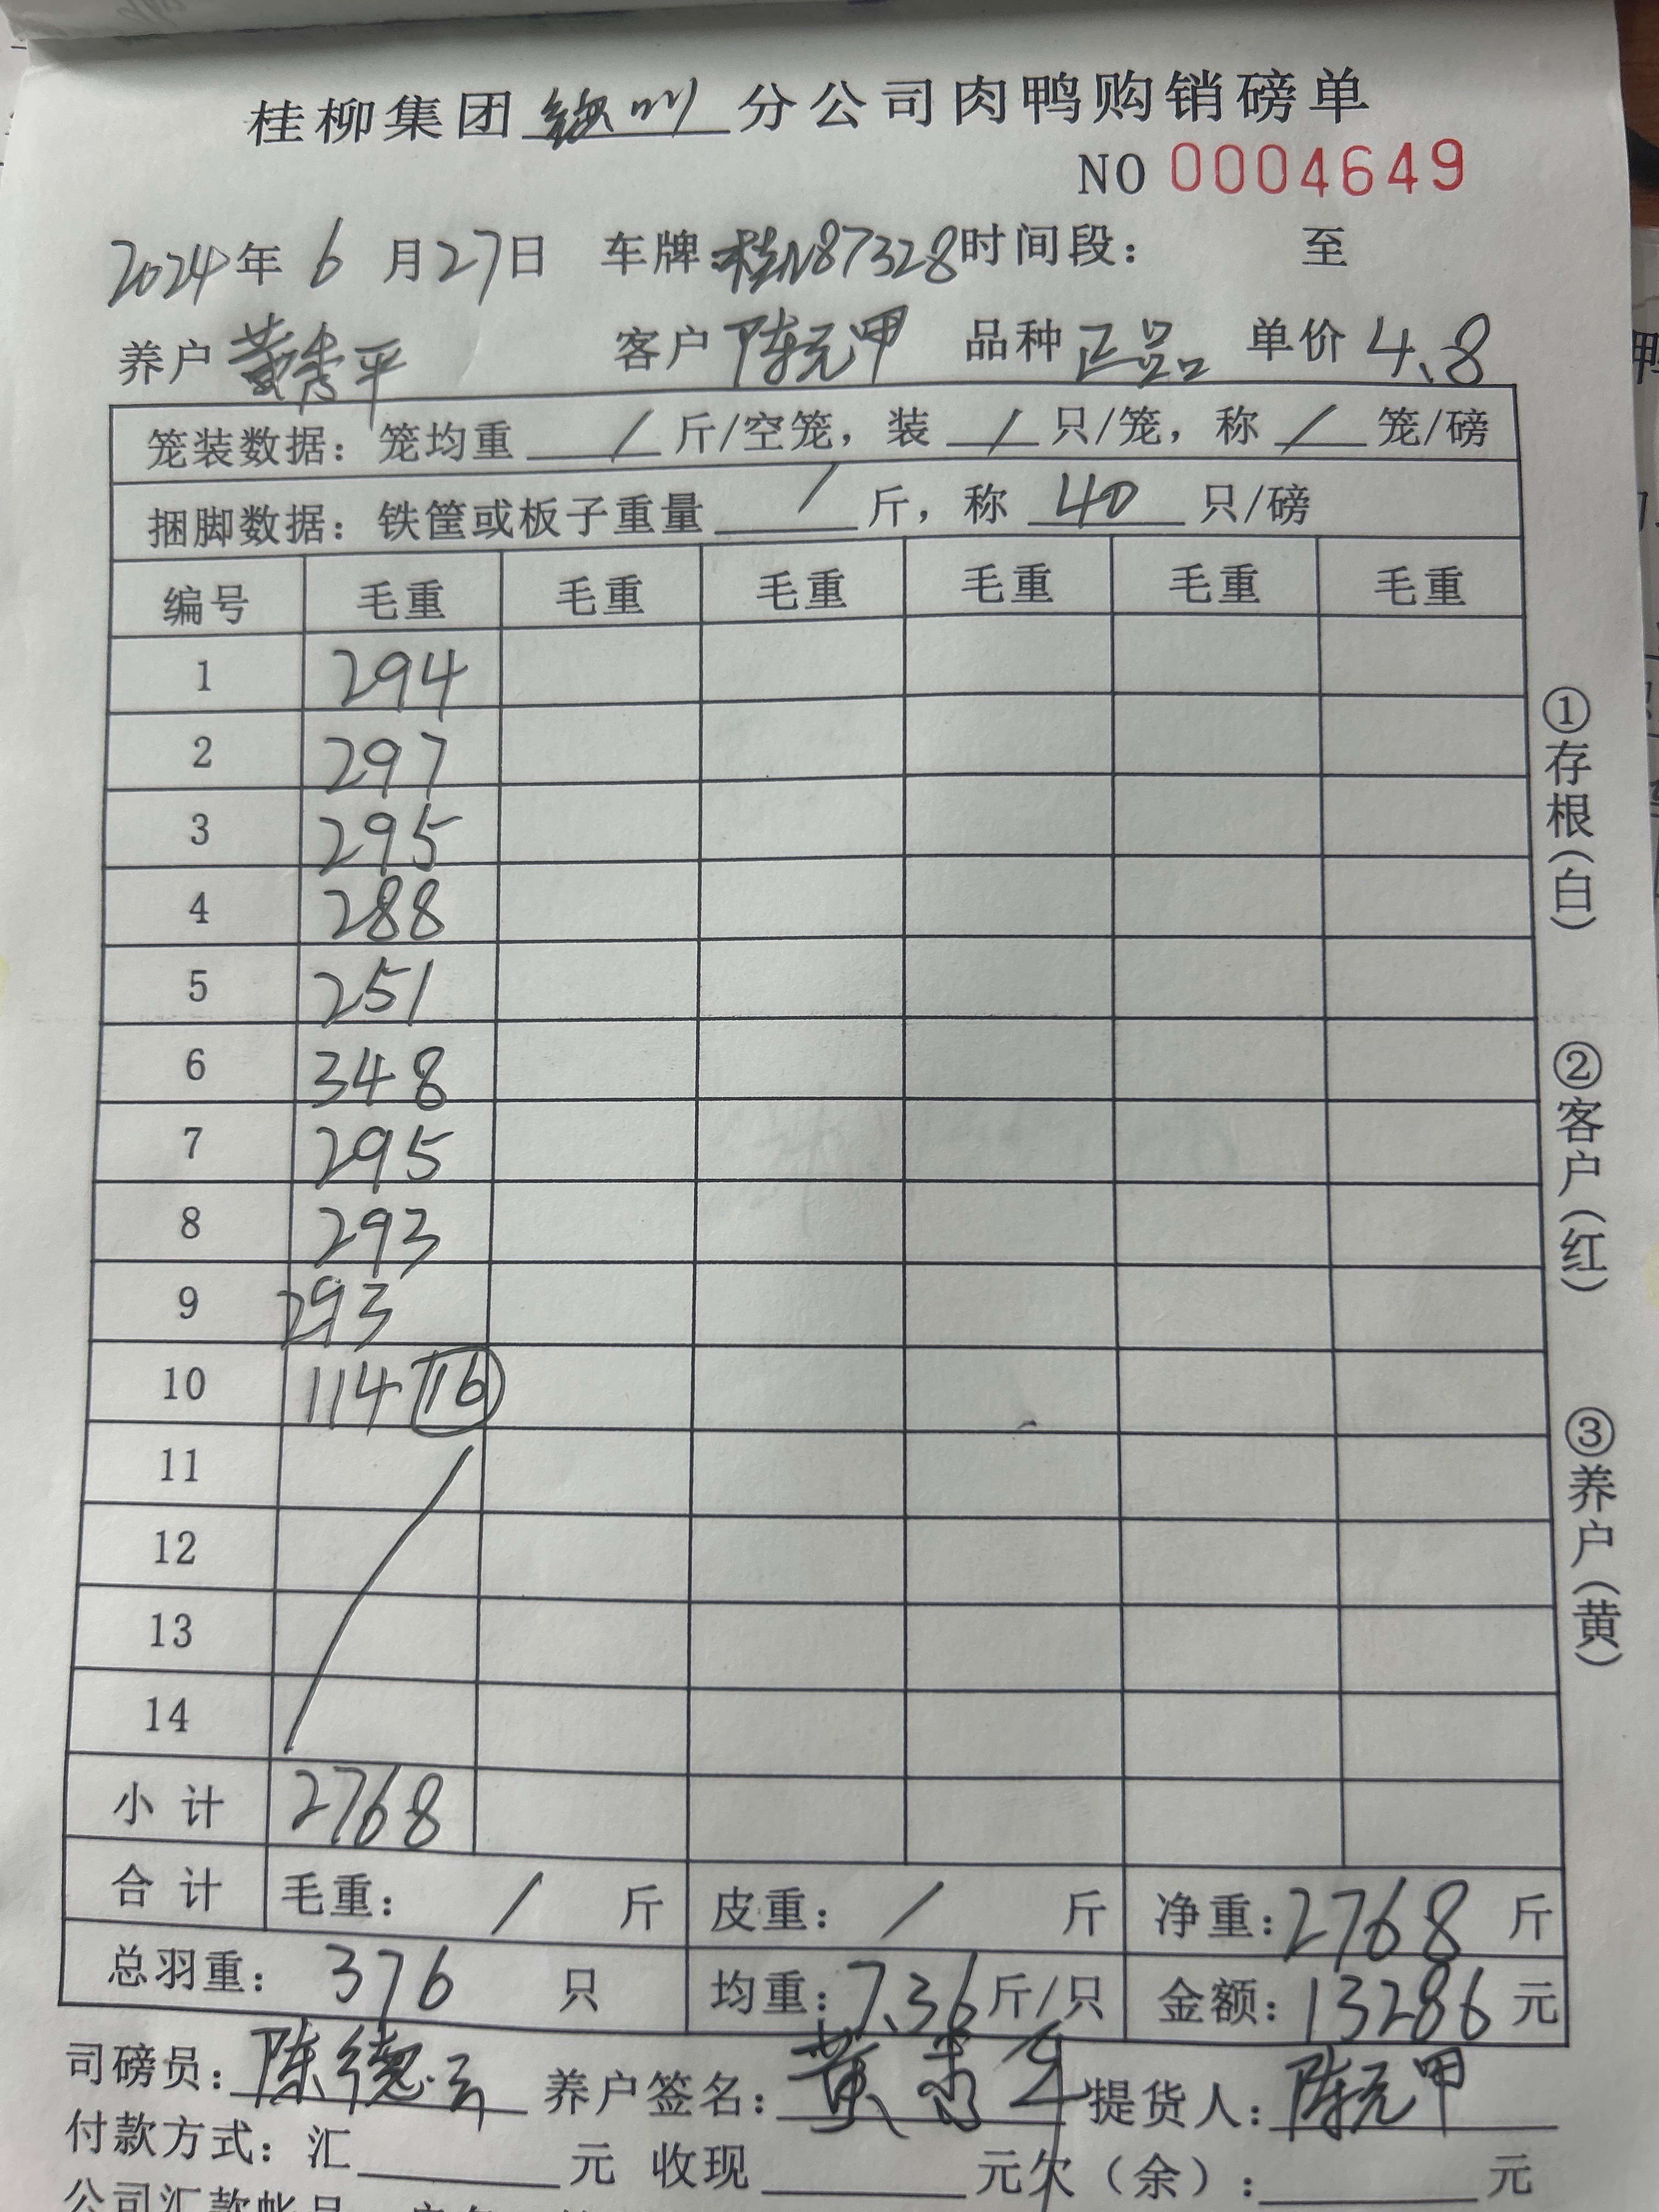 桂柳集团钦州分公司肉鸭购销磅单
NO 0004649
2024年6月27日 车牌:桂N87328时间段: 至
养户 黄秀平 客户 陈元甲 品种 正品 单价 4.8
笼装数据: 笼均重 / 斤/空笼, 装 / 只/笼, 称 / 笼/磅
捆脚数据: 铁筐或板子重量 / 斤, 称 40 只/磅
编号 毛重 毛重 毛重 毛重 毛重 毛重
1 294
2 297
3 295
4 288
5 251
6 348
7 295
8 293
9 293
10 114 16
11
12
13
14
小计 2768
合计 毛重: / 斤 皮重: / 斤 净重:2768 斤
总羽重: 376 只 均重:7.36斤/只 金额:13286元
司磅员:陈德 养户签名:黄秀平 提货人:陈元甲
付款方式: 汇 元 收现 元欠(余): 元
①存根(白)
②客户(红)
③养户(黄)